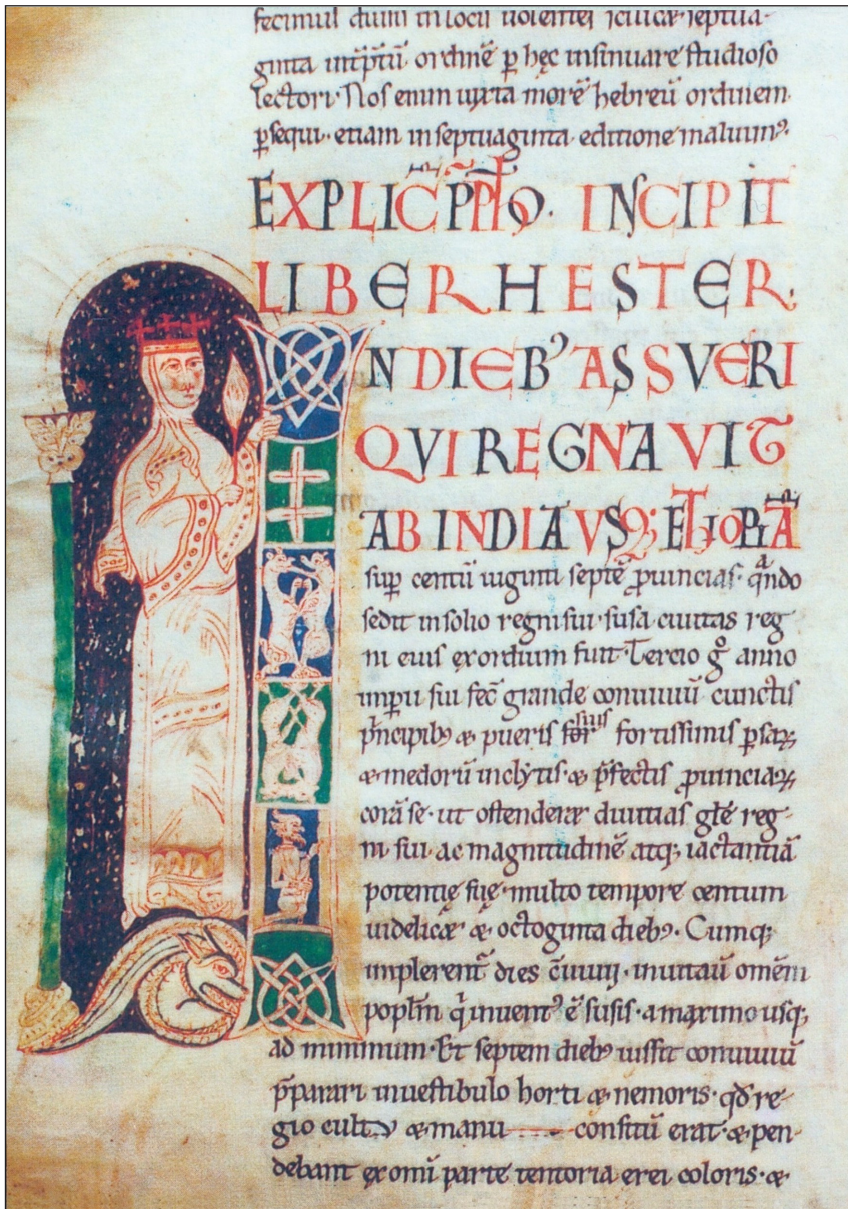 fecimus dum in locis
ginta int̄p̄tū ordinē ꝑ hęc insinuare studioso
lectori· Nos enim iuxta morē hebreū ordinem
ꝑsequi· etiam in septuaginta editione maluim᾽
EXPLIC̄ P̄P̄LO. INCIPIT
LIBER HESTER.
N DIEB᾽ ASSVERI
QVI REGNAVIT
AB INDIA VSQ; ETHIOPIĀ
suꝑ centū uiginti septē ꝓuincias· qᵃndo
sedit in solio regni sui· susa ciuitas reg
ni eius exordium fuit· Tercio gͦ anno
imꝑii sui fec̄ grande conuiuiū cunctis
p̄ncipib᾽ & pueris suis fortissimis ꝑsaꝝ
& medorū inclytis· & p̄fectis ꝓuinciaꝝ
corā se· ut ostenderet diuitias gl̄ę reg-
ni sui· ac magnitudinē atq; iactantiā
potentię suę· multo tempore centum
uidelicet & octoginta dieb᾽· Cumq;
implerent᷑ dies c̄uiuii· inuitau̅ omēm
popl̄m q̇ inuent᾽ ē susis· a maximo usq;
ad minimum· Et septem dieb᾽ iussit conuiuiū
p̄parari in uestibulo horti & nemoris· qd̄ re-
gio cultu & manu consitū erat· & pen-
debant ex omi̅ parte tentoria erei coloris· &